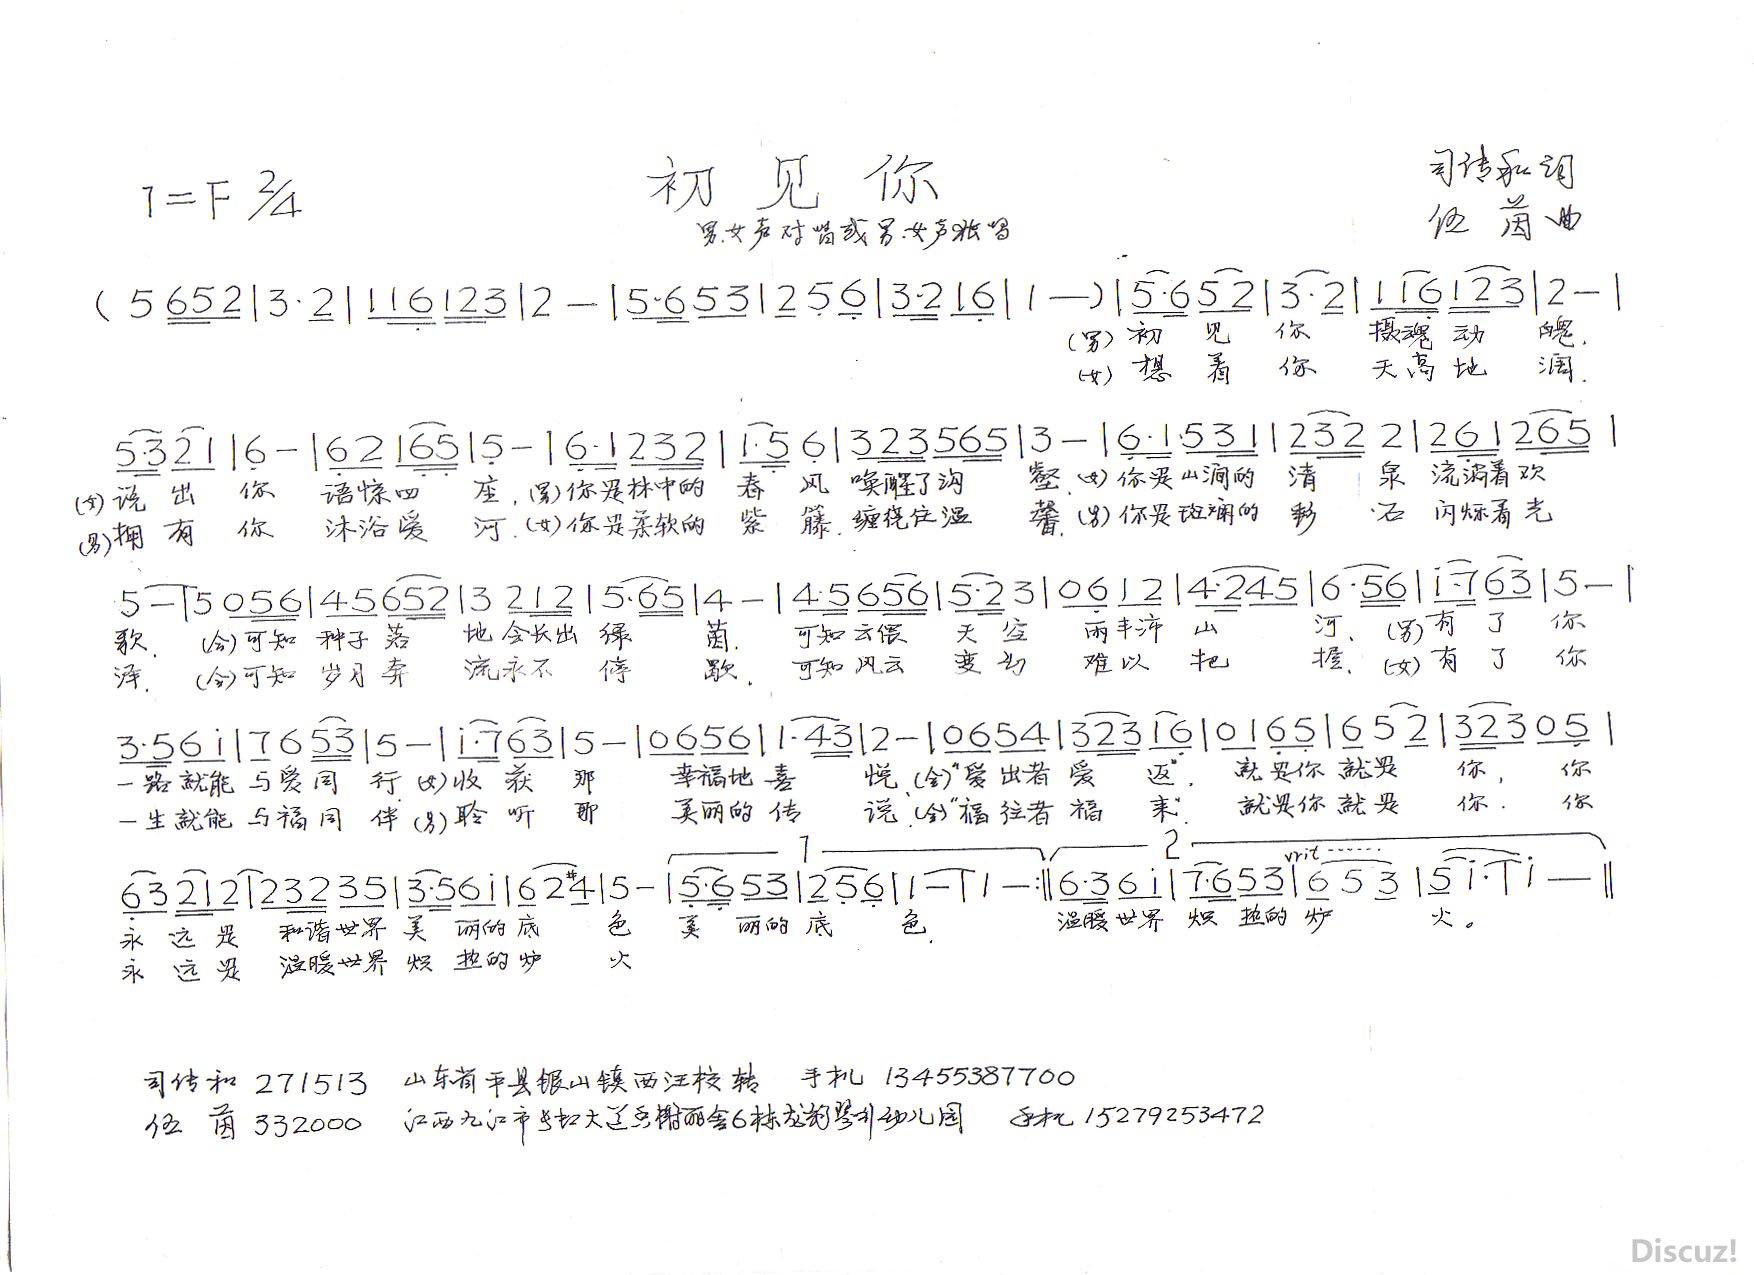 1=F 2/4
初见你
男.女声对唱或男.女声独唱
司传和词
伍茵曲
( 5 652 | 3·2 | 116 123 | 2 — | 5·6 53 | 2 5 6 | 3·2 16 | 1 —) | 5·6 52 | 3·2 | 116 123 | 2 — |
(男) 初见你 摄魂动魄.
(女) 想着你 天高地阔.
5·3 21 | 6 — | 62 165 | 5 — | 6·1 232 | 1·5 6 | 323 565 | 3 — | 6·1 531 | 232 2 | 261 265 |
(女)说出你 语惊四座.(男)你是林中的春风 唤醒了沟壑.(女)你是山涧的清泉 流淌着欢
(男)拥有你 沐浴爱河.(女)你是柔软的紫藤.缠绕住温馨.(男)你是斑斓的彩石 闪烁着光
5 — | 5 056 | 45 652 | 3 212 | 5·65 | 4 — | 4·5 656 | 5·2 3 | 06 12 | 4·245 | 6·56 | i·7 63 | 5 — |
歌. (合)可知 种子落地会长出绿茵. 可知云偎天空 雨丰沛山河. (男)有了你
泽. (合)可知 岁月奔流永不停歇. 可知风云变幻 难以把握. (女)有了你
3·5 6i | 76 53 | 5 — | i·7 63 | 5 — | 06 56 | 1·43 | 2 — | 06 54 | 323 16 | 01 65 | 6 5 2 | 323 05 |
一路就能与爱同行.(女)收获那 幸福地喜悦.(合)“爱出者爱返”. 就是你就是你, 你
一生就能与福同伴(男)聆听那 美丽的传说.(合)“福往者福来”. 就是你就是你. 你
63 212 | 232 35 | 3·5 6i | 62 #4 | 5 — | 5·6 53 | 2 5 6 | 1 — | 1 — :‖ 6·3 6i | 7·6 53 | 6 5 3 | 5 i· | i — ‖
1
2
rit------
永远是 和谐世界美丽的底色 美丽的底色. 温暖世界炽热的炉火。
永远是 温暖世界炽热的炉火
司传和 271513 山东省平县银山镇西汪校转 手机 13455387700
伍茵 332000 江西九江市 大道 6栋 幼儿园 手机 15279253472
Discuz!